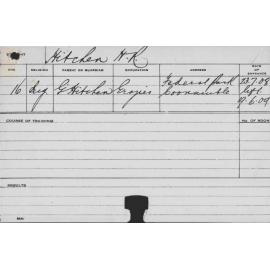 Hitchen H. R.
AGE RELIGION PARENT OR GUARDIAN OCCUPATION ADDRESS DATE OF ENTRANCE
16 Ang G Hitchen Grazier Federal Park 23.7.08
Coonamble left
17.6.09
COURSE OF TRAINING
No. OF ROOM
RESULTS